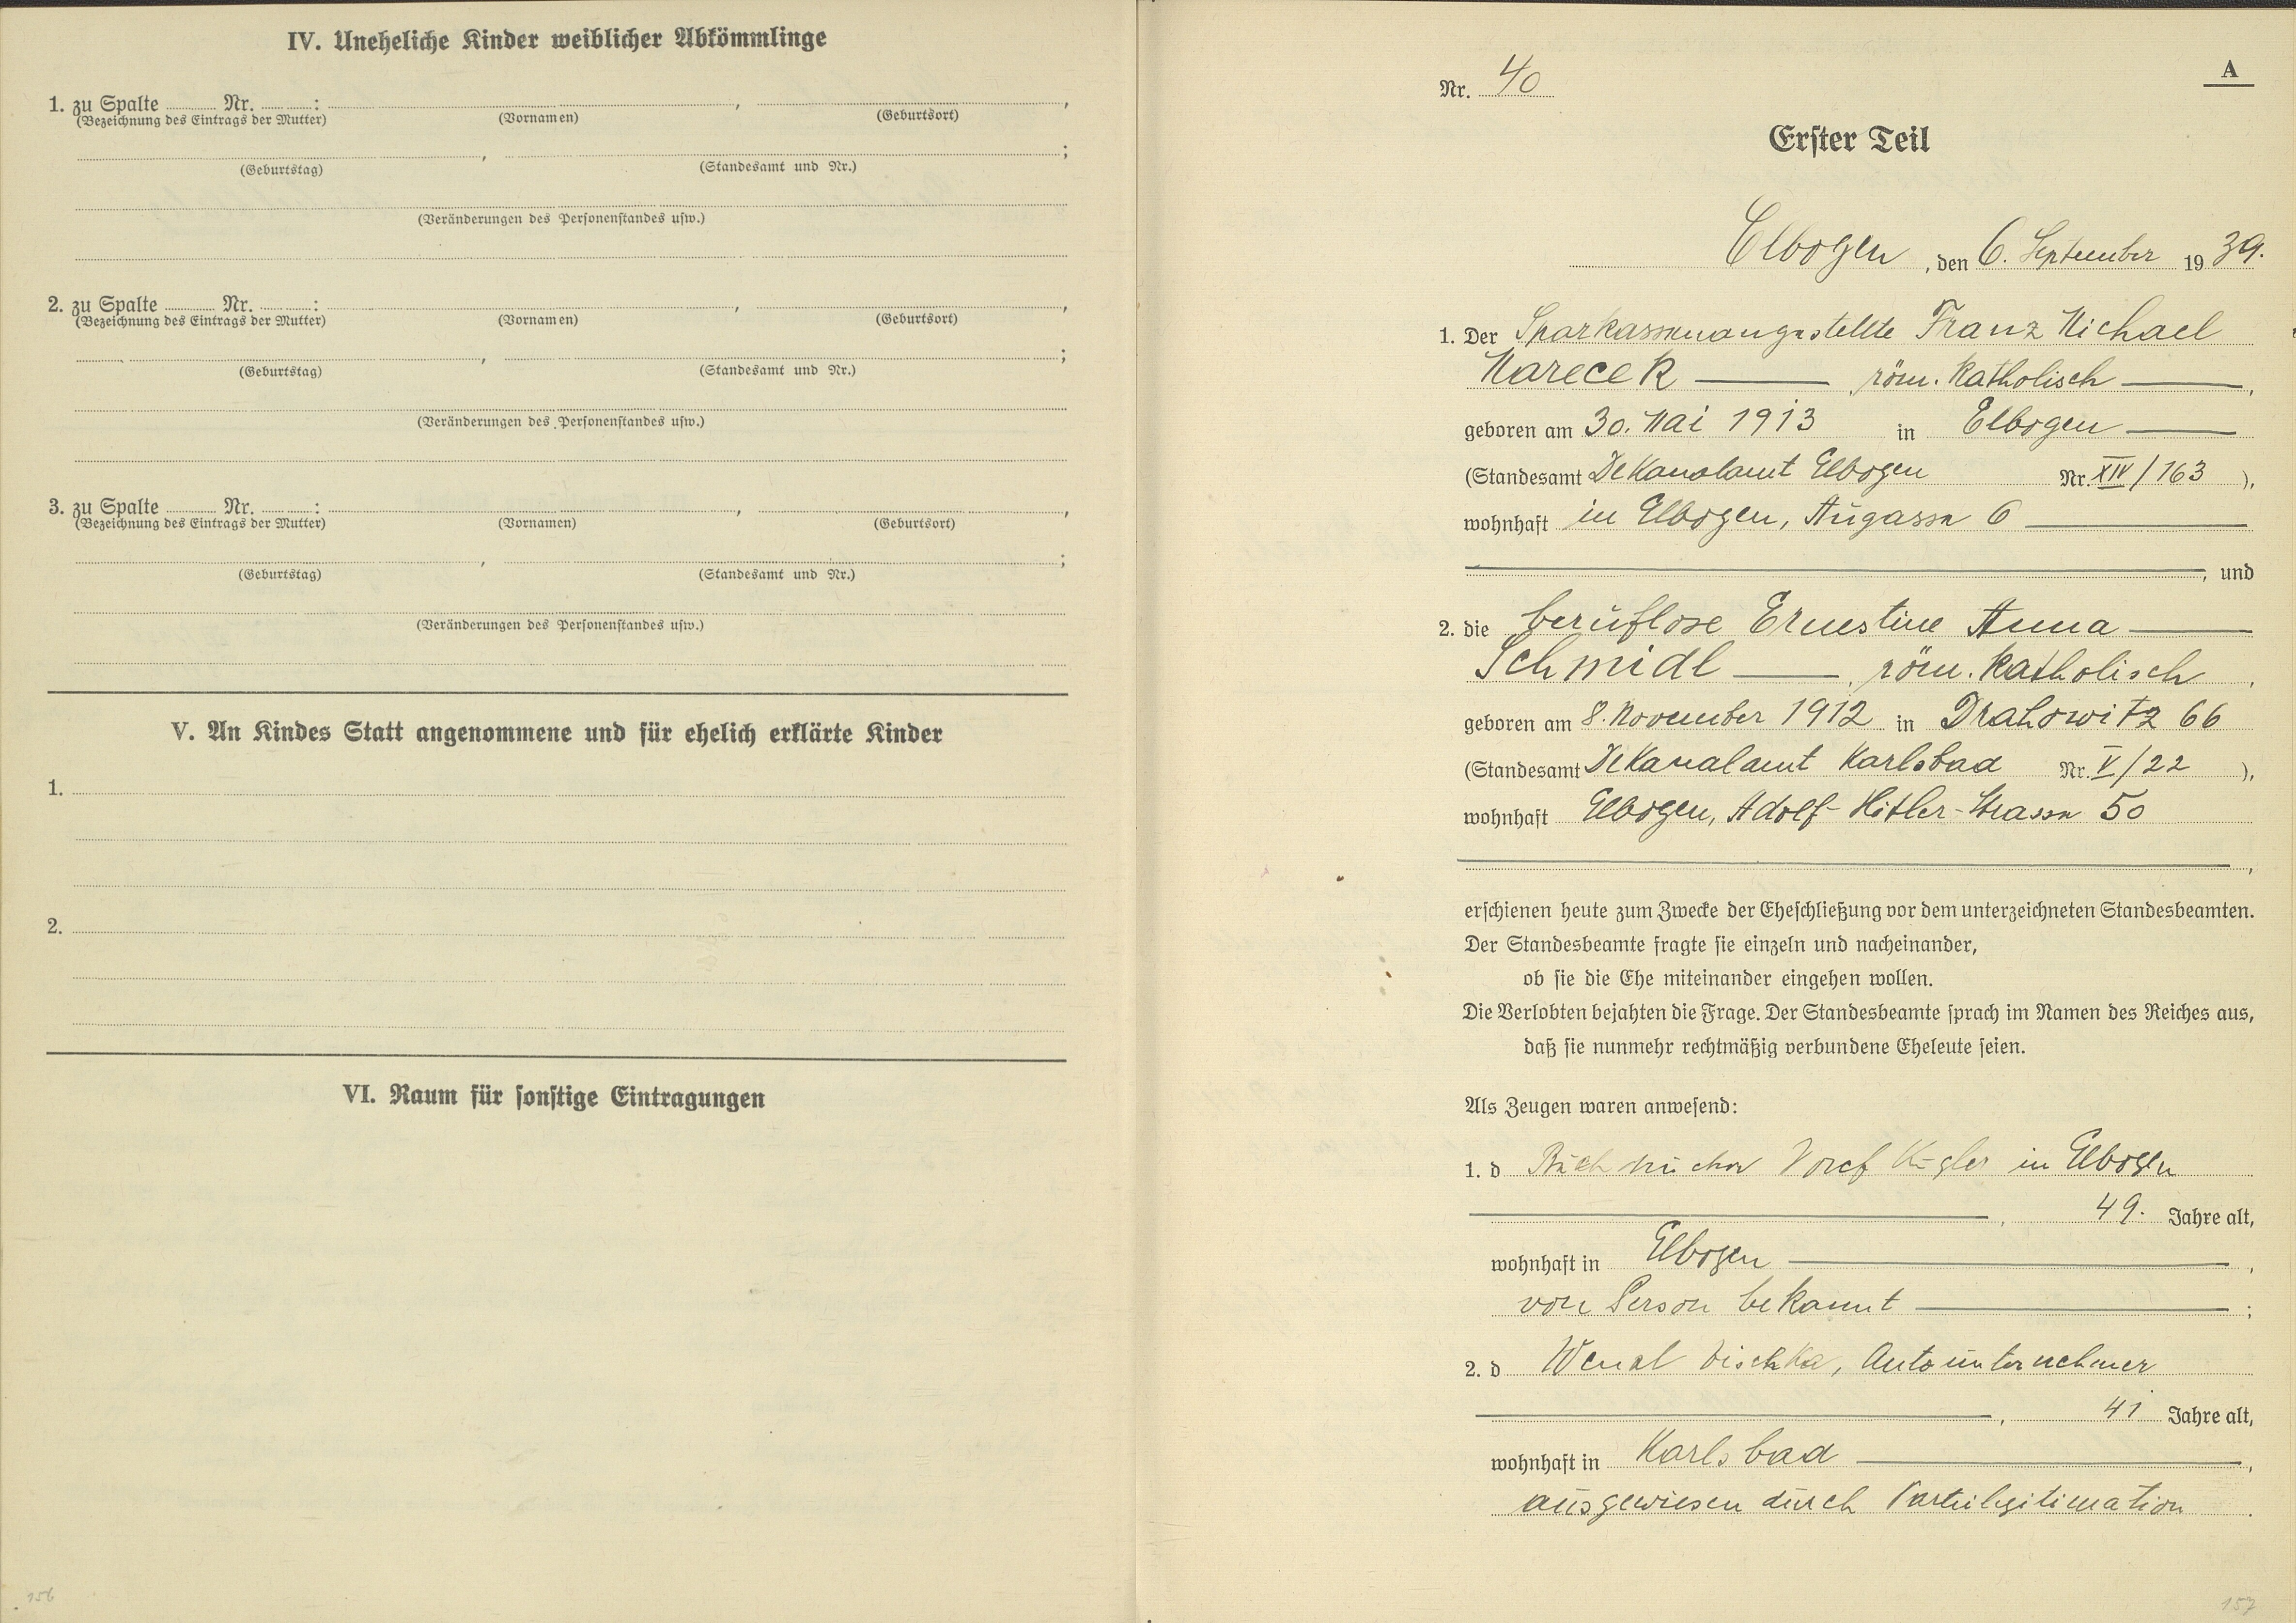 IV. Uneheliche Kinder weiblicher Abkömmlinge
1. zu Spalte ........ Nr. ........ : , ,
(Bezeichnung des Eintrags der Mutter) (Vornamen) (Geburtsort)
, ;
(Geburtstag) (Standesamt und Nr.)
(Veränderungen des Personenstandes usw.)
2. zu Spalte ........ Nr. ........ : , ,
(Bezeichnung des Eintrags der Mutter) (Vornamen) (Geburtsort)
, ;
(Geburtstag) (Standesamt und Nr.)
(Veränderungen des Personenstandes usw.)
3. zu Spalte ........ Nr. ........ : , ,
(Bezeichnung des Eintrags der Mutter) (Vornamen) (Geburtsort)
, ;
(Geburtstag) (Standesamt und Nr.)
(Veränderungen des Personenstandes usw.)
V. An Kindes Statt angenommene und für ehelich erklärte Kinder
1.
2.
VI. Raum für sonstige Eintragungen
156
A
Nr. 40
Erster Teil
Elbogen, den 6. September 1939.
1. Der Sparkassenangestellte Franz Michael
Marecek —, röm. katholisch —,
geboren am 30. Mai 1913 in Elbogen —
(Standesamt Dekanalamt Elbogen Nr. XIV/163),
wohnhaft in Elbogen, Augasse 6 —
—, und
2. die beruflose Ernestine Anna —
Schmidl —, röm. katholisch,
geboren am 8. November 1912 in Drahowitz 66
(Standesamt Dekanalamt Karlsbad Nr. V/22),
wohnhaft Elbogen, Adolf-Hitler-Strasse 50
—,
erschienen heute zum Zwecke der Eheschließung vor dem unterzeichneten Standesbeamten.
Der Standesbeamte fragte sie einzeln und nacheinander,
ob sie die Ehe miteinander eingehen wollen.
Die Verlobten bejahten die Frage. Der Standesbeamte sprach im Namen des Reiches aus,
daß sie nunmehr rechtmäßig verbundene Eheleute seien.
Als Zeugen waren anwesend:
1. d Josef Kugler in Elbogen
—, 49. Jahre alt,
wohnhaft in Elbogen —,
von Person bekannt —;
2. d Wenzl , Autounternehmer
—, 41 Jahre alt,
wohnhaft in Karlsbad —,
ausgewiesen durch Parteilegitimation.
157